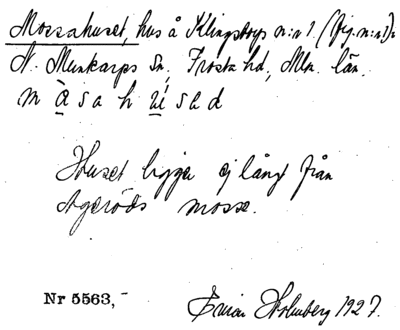 Mossahuset, hus å Klingstorps n:r 1. (fig. n:r 1):
N. Munkarps Sn., Frosta hd, Mlm. län.
m à s a h ú s a d
Huset ligger ej långt från
Ageröds mosse.
Nr 5563,-
Holmberg 1927.